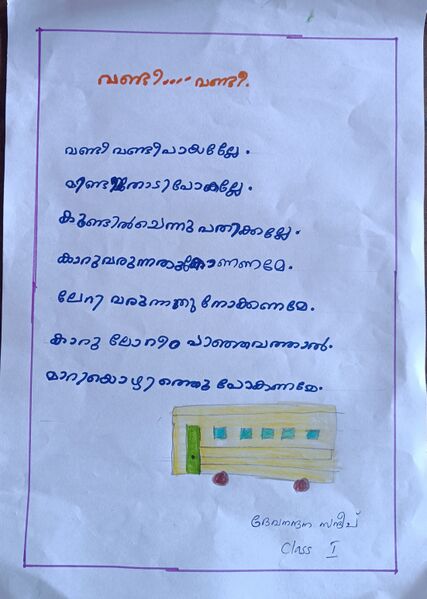 വണ്ടി.... വണ്ടി.
വണ്ടി വണ്ടിപായല്ലേ.
മിണ്ടാതോടിപോകല്ലേ.
കുണ്ടിൽചെന്നു പതിക്കല്ലേ.
കാറുവരുന്നതുകാണണമേ.
ലോറി വരുന്നതു നോക്കണമേ.
കാറു ലോറീം പാഞ്ഞുവന്നാൽ.
മാറിയൊഴിഞ്ഞു പോകണമേ.
ദേവനന്ദന സന്ദീപ്
Class I